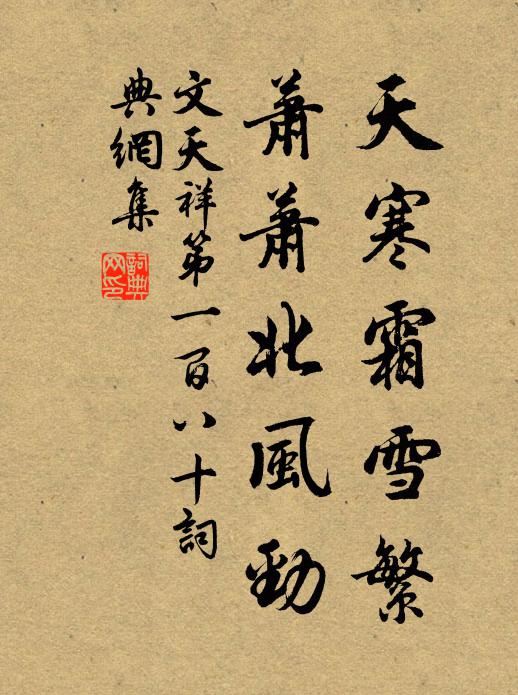 天寒霜雪繁
蕭蕭北風勁
文天祥第一百八十詞
典網集
詞典網印